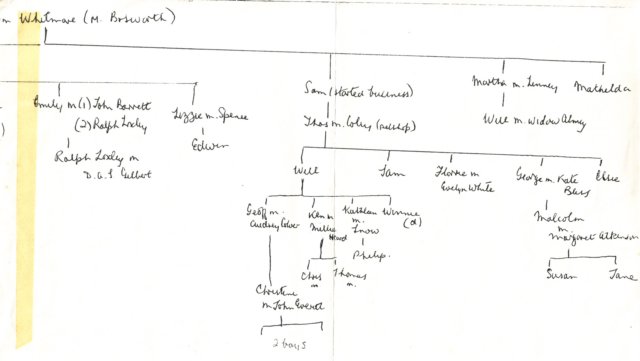 m Whitmore (M. Bosworth)
Sam (started business)
Martha m. Linney
Mathilda
Emily m (1) John Barrett
(2) Ralph Loxley
Lizzie m. Spence
Thos m. Coley
Will m. Widow Almey
Ralph Loxley m
D. G. S Gilbert
Edwin
Will
Sam
Florrie m
Evelyn White
George m. Kate
Elsie
Geoff m.
Audrey
Ken m
Millie
Kathleen
m.
Snow
Winnie
(d)
Malcolm
m.
Margaret Atkinson
Philip.
Chris
m
Thomas
m.
Susan
Jane
Christine
m John Everett
2 boys